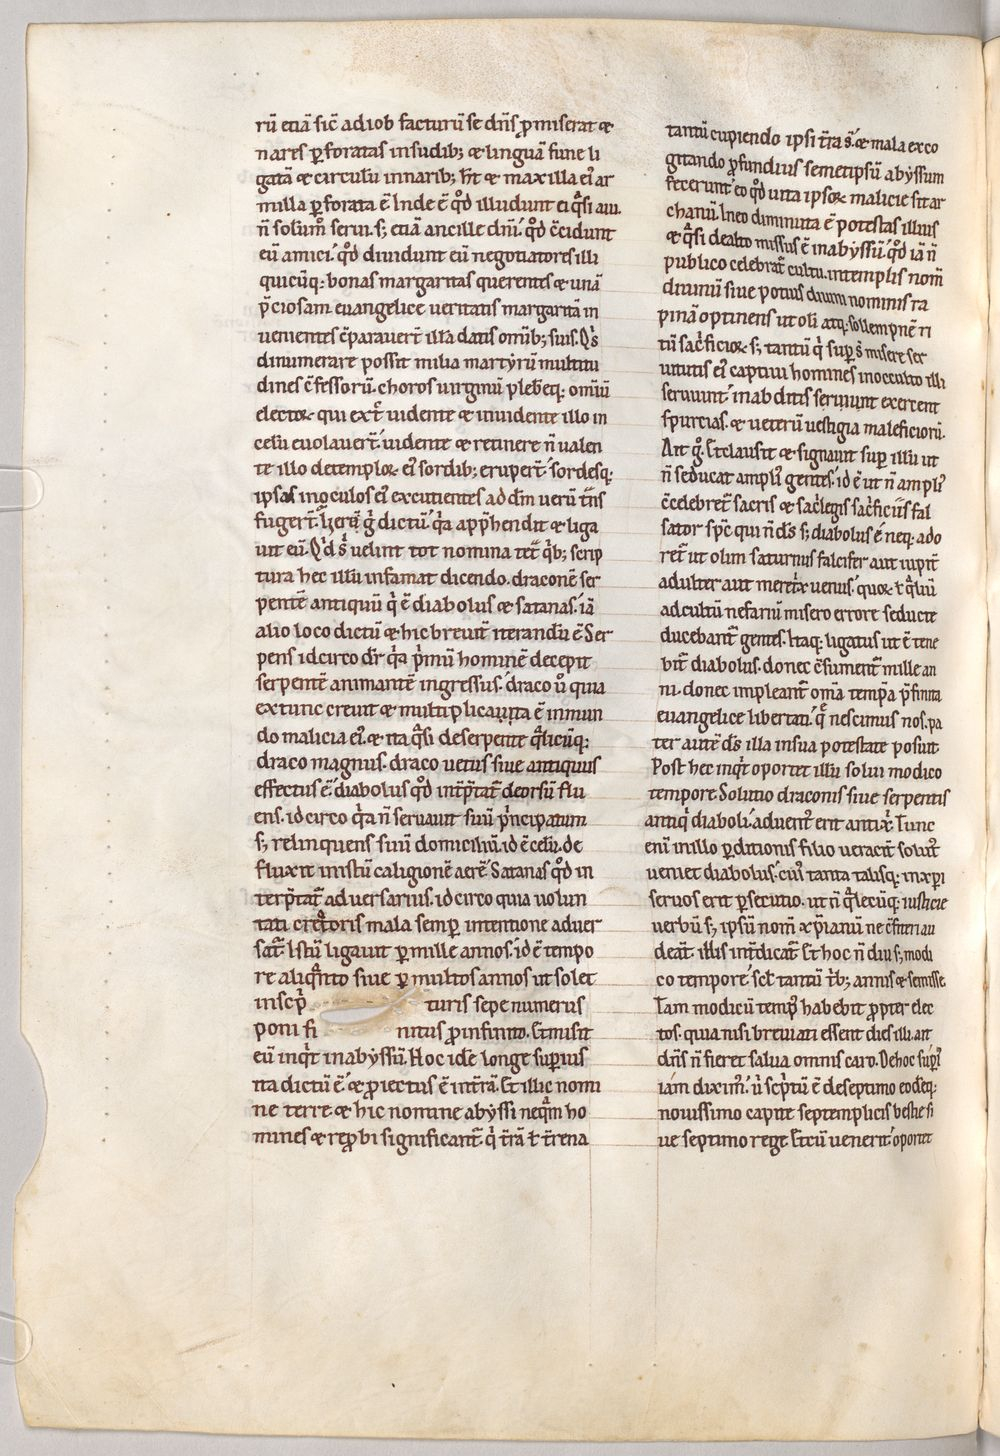 rū etiā sic̄ ad iob facturū se dn̄s p̱miserat &
nares ꝑforatas in sudib; & linguā fune li
gatā & circulū in narib; hr̄t & maxilla ei' ar
milla ꝑforata ē Inde ē qd̊ illudunt ei qͣsi aui.
n̄ solūm̊ serui. s; etiā ancille dn̄i. qd̊ c̄cidunt
eū amici. qd̊ diuidunt eū negotiatores illi
quicūq: bonas margaritas querentes & unā
p̄ciosam euangelice ueritatis margaritā in
uenientes c̄parauert̄ illā datis om̄ib; suis. Qͥs
dinumerare possit milia martyrū multitu
dines c̄fessorū. choros uirginū plebeq: om̄iū
electoꝝ qui ext̄ uidente & inuidente illo in
celū euolauert̄. uidente & retinere n̄ ualen
te illo de temploꝝ ei' sordib; erupert̄. sordesq:
ipsas in oculos ei' excutientes ad dm̄ uerū
fugert̄. g̊ dictū. qͣa app̄hendit & liga
uit eū. Qͥd s̊ uelint tot nomina qͥb; scrip
tura hec illū infamat dicendo. draconē ser
pentē antiquū qͥ ē diabolus & satanas. iā
alio loco dictū & hic breuit̄ iterandū ē Ser
pens idcirco dr̄ qͣa pͥmū hominē decepit
serpentē animantē ingressus. draco ů quia
ex tunc creuit & multiplicata ē in mun
do malicia ei'. & ita qͣsi de serpente qͣlicūq:
draco magnus. draco uetus siue antiquus
effectus ē. diabolus qd̊ int̄p̄tat̄ deorsū flu
ens. idcirco qͣa n̄ seruauit suū pͥncipatum
s; relinquens suū domiciliū. id ē celū. de
fluxit in istū caliginē aerē. Satanas qd̊ in
terp̄tat̄ aduersarius. idcirco quia uolun
tati creatoris mala semꝑ intentione aduer
sat̄. Istū ligauit ꝑ mille annos. id ē tempo
re aliqͣnto siue ꝑ multos annos ut solet
in scpͥ turis sepe numerus
poni fi nitus p̱ infinito. Et misit
eū inqͥt in abyssū. Hoc idē longe suꝑius
ita dictū ē. & p̱iectus ē in t̄rā. Et illic nomi
ne terre & hic nomine abyssi neqͣm ho
mines & rep̱bi significant̄. qͥ t̄rā ł t̄rena
tantū cupiendo ipsi t̄ra s̄. & mala exco
gitando p̱fundius semetipsū abyssum
fecerunt eo qd̊ uita ipsoꝝ malicie sit ar
chanū. In eo diminuta ē potestas illius
& qͣsi de alto missus ē in abyssū. qd̊ iā n̄
publico celebrat̄ cultu. in templis nom̄
diuinū siue potius diuini nominis ra
pinā optinens ut oli atq: sollempnē ri
tū sacͥficioꝝ s; tantū qͥ misere ser
uitutis ei' captiui homines in occulto illi
seruiunt. in abditis seruiunt exercent
spurcias. & ueterū uestigia maleficiorū.
Ait g̊. Et clausit & signauit suꝑ illū ut
n̄ seducat ampli' gentes. id ē ut n̄ ampli'
c̄celebret̄ sacris & sacͥlegis sacͥficiis fal
sator spc̄ qui n̄ ds̄ s; diabolus ē neq: ado
ret̄ ut olim saturnus falcifer aut iupit̄
adulter aut meretͥx uenus. quoꝝ ł qͣliū
ad cultū nefariū misero errore seducte
ducebant̄ gentes. Itaq: ligatus ut ē tene
bit̄ diabolus. donec c̄sument̄ mille an
ni. donec impleant̄ om̄ia temp̄a p̄finita
euangelice libertati. qͤ nescimus nos. pa
ter autē ds̄ illa in sua potestate posuit
Post hec inqͥt oportet illū solui modico
tempore. Solutio draconis siue serpentis
antiqͥ diaboli. aduent' erit antixͥ. Tunc
enī in illo ꝑditionis filio ueracit̄ solut'
ueniet diabolus. cui' tanta talisq: in xp̄i
seruos erit ꝑsecutio. ut n̄ qͣlecūq: iusticie
uerbū s; ipsū nom̄ xp̄ianū ne c̄fiteri au
deat. illis int̄dicat̄. Et hoc n̄ diu s; modi
co tempore. scł tantū tͥb; annis & semisse.
Tam modicū temp' habebit p̱pter elec
tos. quia nisi breuiati essent dies illi. ait
dn̄s n̄ fieret salua omnis caro. De hoc suꝑi'
iam dixim'. ů scpͥtū ē de septimo eodēq:
nouissimo capite septemplicis bestie si
ue septimo rege Et cū uenerit oportet